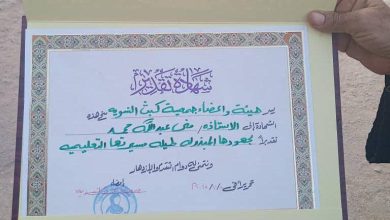 شهادة تقدير
يسر هيئة وأعضاء جمعية كبث التنموية منح هذه
الشهادة إلى الاستاذة/ منى عبدالله محمد
تقديراً لجهودها المبذولة طيلة مسيرتها التعليمي
ونتمنى له دوام التقدم والإزدهار
تحريراً في / /